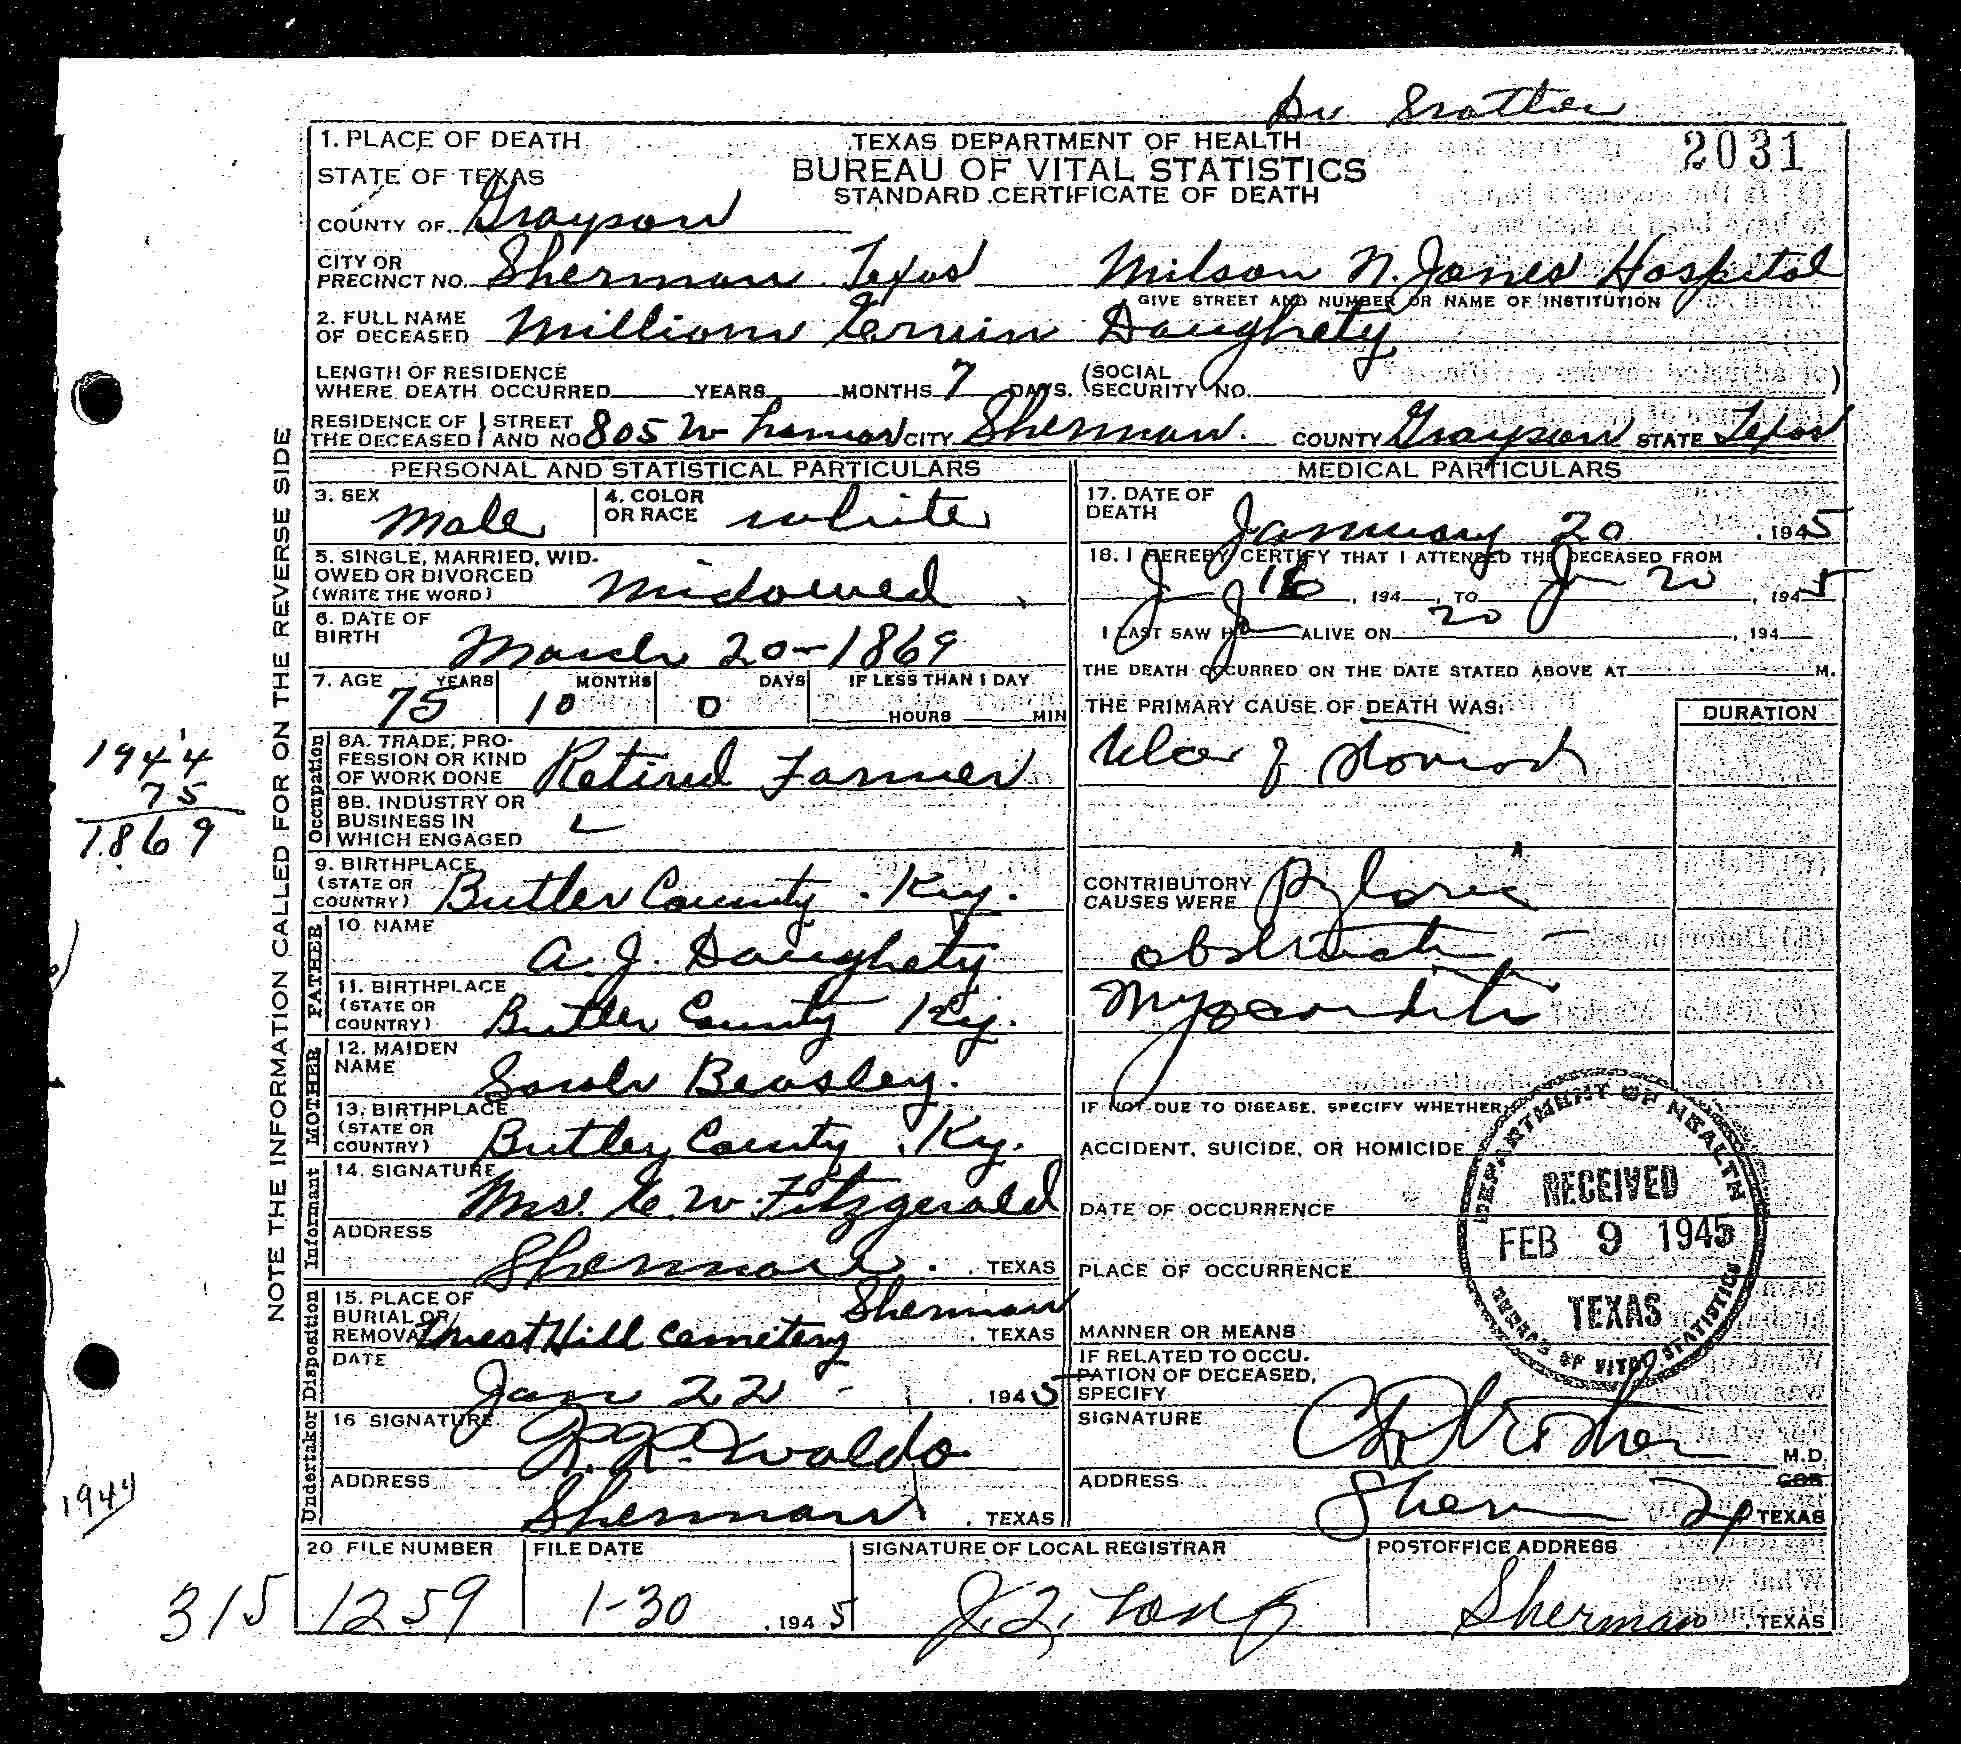 Dr
1. PLACE OF DEATH
STATE OF TEXAS
COUNTY OF Grayson
TEXAS DEPARTMENT OF HEALTH
BUREAU OF VITAL STATISTICS
STANDARD CERTIFICATE OF DEATH
2031
CITY OR
PRECINCT NO. Sherman Texas Wilson N. Jones Hospital
GIVE STREET AND NUMBER OR NAME OF INSTITUTION
2. FULL NAME
OF DECEASED Daughety
LENGTH OF RESIDENCE
WHERE DEATH OCCURRED YEARS MONTHS 7 DAYS. (SOCIAL SECURITY NO. )
RESIDENCE OF THE DECEASED STREET AND NO 805 W Lamar CITY Sherman. COUNTY Grayson STATE Texas
PERSONAL AND STATISTICAL PARTICULARS
3. SEX Male
4. COLOR OR RACE white
5. SINGLE, MARRIED, WID-
OWED OR DIVORCED
(WRITE THE WORD) Widowed
6. DATE OF
BIRTH March 20-1869
7. AGE 75 YEARS 10 MONTHS 0 DAYS IF LESS THAN 1 DAY
HOURS MIN
Occupation
8A. TRADE, PRO-
FESSION OR KIND
OF WORK DONE Retired Farmer
8B. INDUSTRY OR
BUSINESS IN
WHICH ENGAGED
9. BIRTHPLACE
(STATE OR
COUNTRY) Butler County. Ky.
FATHER
10. NAME A. J. Daughety
11. BIRTHPLACE
(STATE OR
COUNTRY) Butler County Ky.
MOTHER
12. MAIDEN
NAME Sarah Beasley.
13. BIRTHPLACE
(STATE OR
COUNTRY) Butler County. Ky.
Informant
14. SIGNATURE Mrs. C. W. Fitzgerald
ADDRESS Sherman. TEXAS
Disposition
15. PLACE OF
BURIAL OR
REMOVAL West Hill Cemetery Sherman, TEXAS
DATE Jan 22 - 1945
Undertaker
16 SIGNATURE Waldo
ADDRESS Sherman, TEXAS
MEDICAL PARTICULARS
17. DATE OF
DEATH January 20, 1945
18. I HEREBY CERTIFY THAT I ATTENDED THE DECEASED FROM
16, 194 , TO 20, 1945
I LAST SAW H ALIVE ON 20, 194
THE DEATH OCCURRED ON THE DATE STATED ABOVE AT M.
THE PRIMARY CAUSE OF DEATH WAS:
DURATION
Ulcer of stomach
CONTRIBUTORY
CAUSES WERE Pyloric
obstruction -
Myocarditis
IF NOT DUE TO DISEASE, SPECIFY WHETHER
ACCIDENT, SUICIDE, OR HOMICIDE
DATE OF OCCURRENCE
PLACE OF OCCURRENCE
MANNER OR MEANS
IF RELATED TO OCCU-
PATION OF DECEASED,
SPECIFY
SIGNATURE M.D.
ADDRESS Sherman TEXAS
DEPARTMENT OF HEALTH
RECEIVED
FEB 9 1945
TEXAS
BUREAU OF VITAL STATISTICS
20 FILE NUMBER 1259
FILE DATE 1-30, 1945
SIGNATURE OF LOCAL REGISTRAR
POSTOFFICE ADDRESS Sherman, TEXAS
NOTE THE INFORMATION CALLED FOR ON THE REVERSE SIDE
1944
75
1869
1944
315